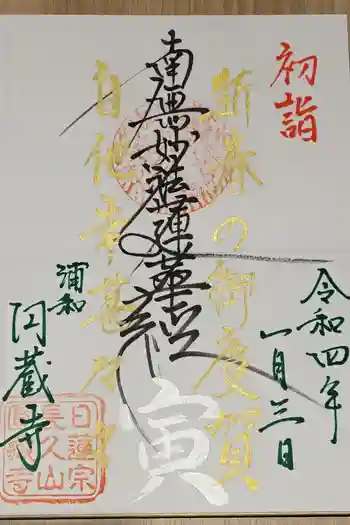 初詣
新春の御慶賀
南無妙法蓮華経
自他幸甚
令和四年
一月三日
浦和
円蔵寺
寅
日蓮宗
長久山
円蔵寺